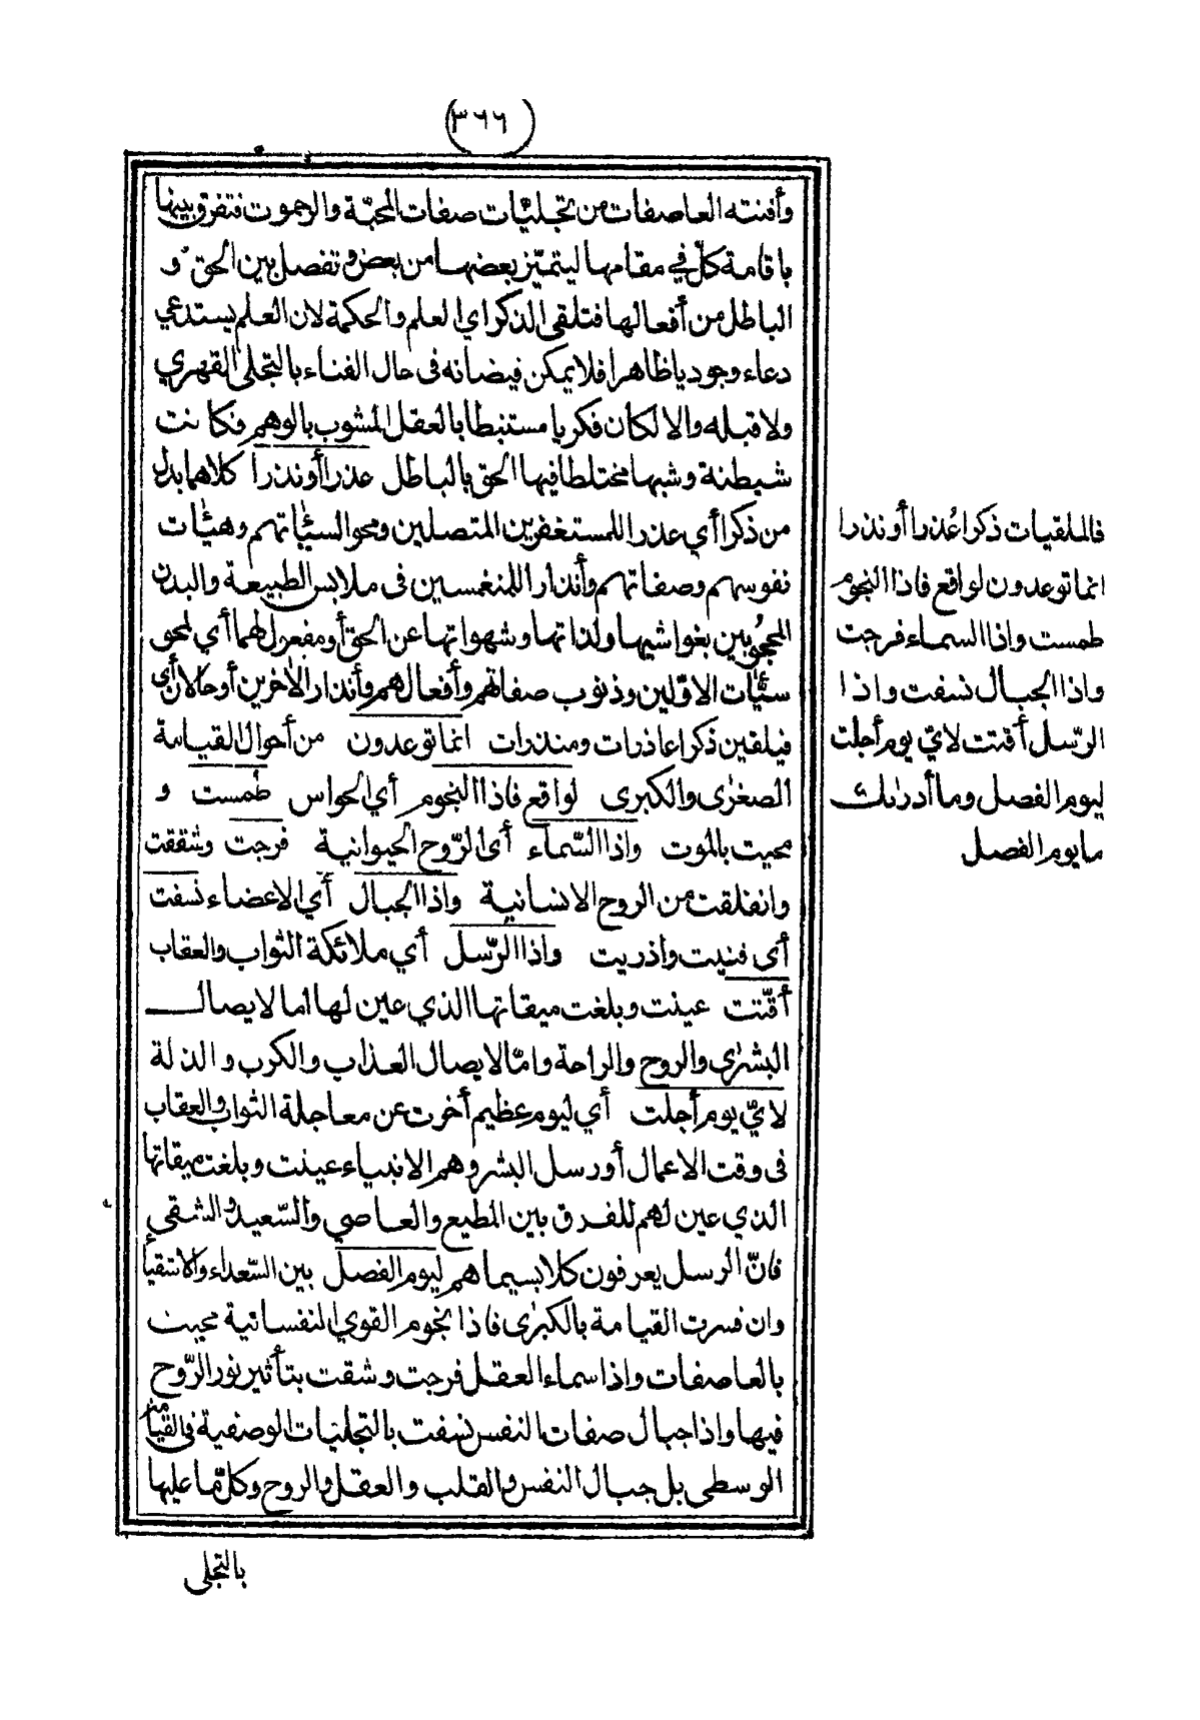 (٣٦٦)
وأفنته العاصفات من تجليّات صفات المحبّة والرحموت فتفرق بينها
باقامة كلّ في مقامها ليتميّز بعضها من بعض وتفصل بين الحق و
الباطل من أفعالها فتلقى الذكر اي العلم والحكمة لان العلم يستدعي
دعاء وجوديا ظاهرا فلا يمكن فيضانه فى حال الفناء بالتجلى القهري
ولا قبله والا لكان فكريا مستنبطا بالعقل المشوب بالوهم فكانت
شيطنة وشبها مختلطا فيها الحق بالباطل عذرا أو نذرا كلاهما بدل
من ذكرا أي عذرا للمستغفرين المتصلين ومحو السيّاٰتهم وهيئات
نفوسهم وصفاتهم وأنذارا للمنغمسين فى ملابس الطبيعة والبدن
المحجُوبين بغواشيها ولذاتها وشهواتها عن الحق أو مفعول لهما أي لمحو
سيّاٰت الاوّلين وذنوب صفاتهم وأفعالهم وأنذار الآخرين أو حالان أي
فيلقين ذكرا عاذرات ومنذرات انما توعدون من أحوال القيامة
الصغرى والكبرى لواقع فاذا النجوم أي الحواس طمست و
محيت بالموت واذا السّماء أى الرّوح الحيوانية فرجت وشققت
وانفلقت من الروح الانسانية واذا الجبال أي الاعضاء نسفت
أى فنيت واذريت واذا الرّسل أي ملائكة الثواب والعقاب
أقّتت عينت وبلغت ميقاتها الذي عين لها اما لايصال
البشرٰى والروح والراحة وامّا لايصال العذاب والكرب والذلة
لايّ يوم أجلت أي ليوم عظيم أخرت عن معاجلة الثواب والعقاب
فى وقت الاعمال أو رسل البشر وهم الانبياء عينت وبلغت ميقاتها
الذي عين لهم للفرق بين المطيع والعاصي والسّعيد والشقى
فانّ الرسل يعرفون كلا بسيماهم ليوم الفصل بين السّعداء والاشقيأ
وان فسرت القيامة بالكبرٰى فاذا نجوم القوي النفسانية محيت
بالعاصفات واذا سماء العقل فرجت وشقت بتأثير نور الرّوح
فيها واذا جبال صفات النفس نسفت بالتجليات الوصفية فى القيامة
الوسطى بل جبال النفس والقلب والعقل والروح وكلّ ما عليها
بالتجلى
فالملقيات ذكرا عُذرا أو نذرا
انما توعدون لواقع فاذا النجوم
طمست واذا السماء فرجت
واذا الجبال نسفت واذا
الرّسل أقتت لايّ يوم أجلت
ليوم الفصل وما أدرٰىك
ما يوم الفصل